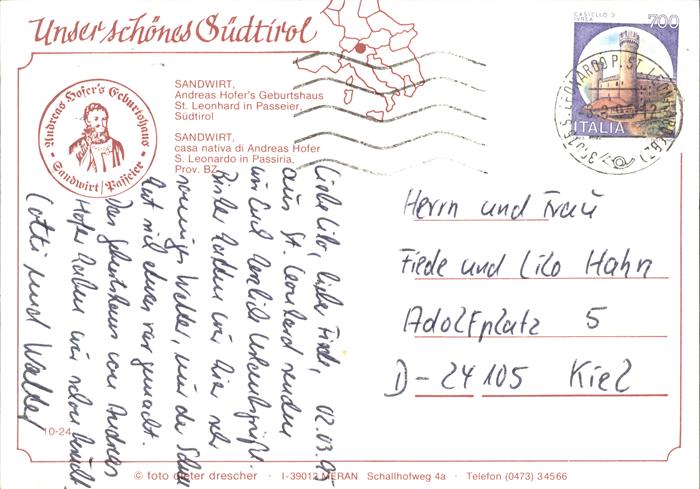 Unser schönes Südtirol
Andreas Hofer's Geburtshaus
Sandwirt/Passeier
SANDWIRT,
Andreas Hofer's Geburtshaus
St. Leonhard in Passeier,
Südtirol
SANDWIRT,
casa nativa di Andreas Hofer
S. Leonardo in Passiria,
Prov. BZ
CASTELLO D
IVREA
700
ITALIA
02.03.95
Liebe Lilo, lieber Fiede,
aus St. Leonhard senden
wir Euch herzliche Urlaubsgrüße.
Bisher hatten wir hier sehr
sonniges Wetter, nur der Schnee
hat sich etwas rar gemacht.
Das Geburtshaus von Andreas
Hofer haben wir schon besucht
Lotti und Walter
Herrn und Frau
Fiede und Lilo Hahn
Adolfplatz 5
D-24105 Kiel
10-24
© foto dieter drescher · I-39012 MERAN Schallhofweg 4a · Telefon (0473) 34566